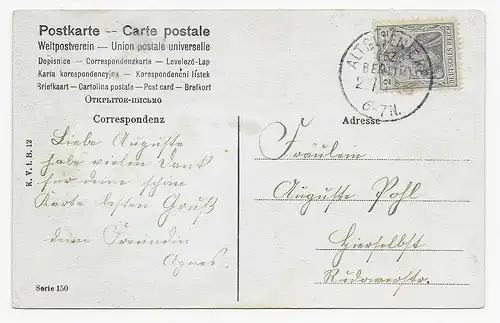 Postkarte -- Carte postale
Weltpostverein -- Union postale universelle
Dopisnice - Correspondenzkarte - Levelező-Lap
Karta korespondencyjna - Korespondenční lístek
Briefkaart - Cartolina postale - Post card - Brefkort
Открытое-письмо
Correspondenz
Adresse
ALTGLIENICKE
BERLIN
6-7N.
DEUTSCHES REICH
Liebe Auguste
habe vielen Dank
für deine schöne
Karte besten Gruß
deine Freundin
Agnes.
Fräulein
Auguste Pohl
Hierselbst
Rudowerstr.
K. V. i. B. 12
Serie 150